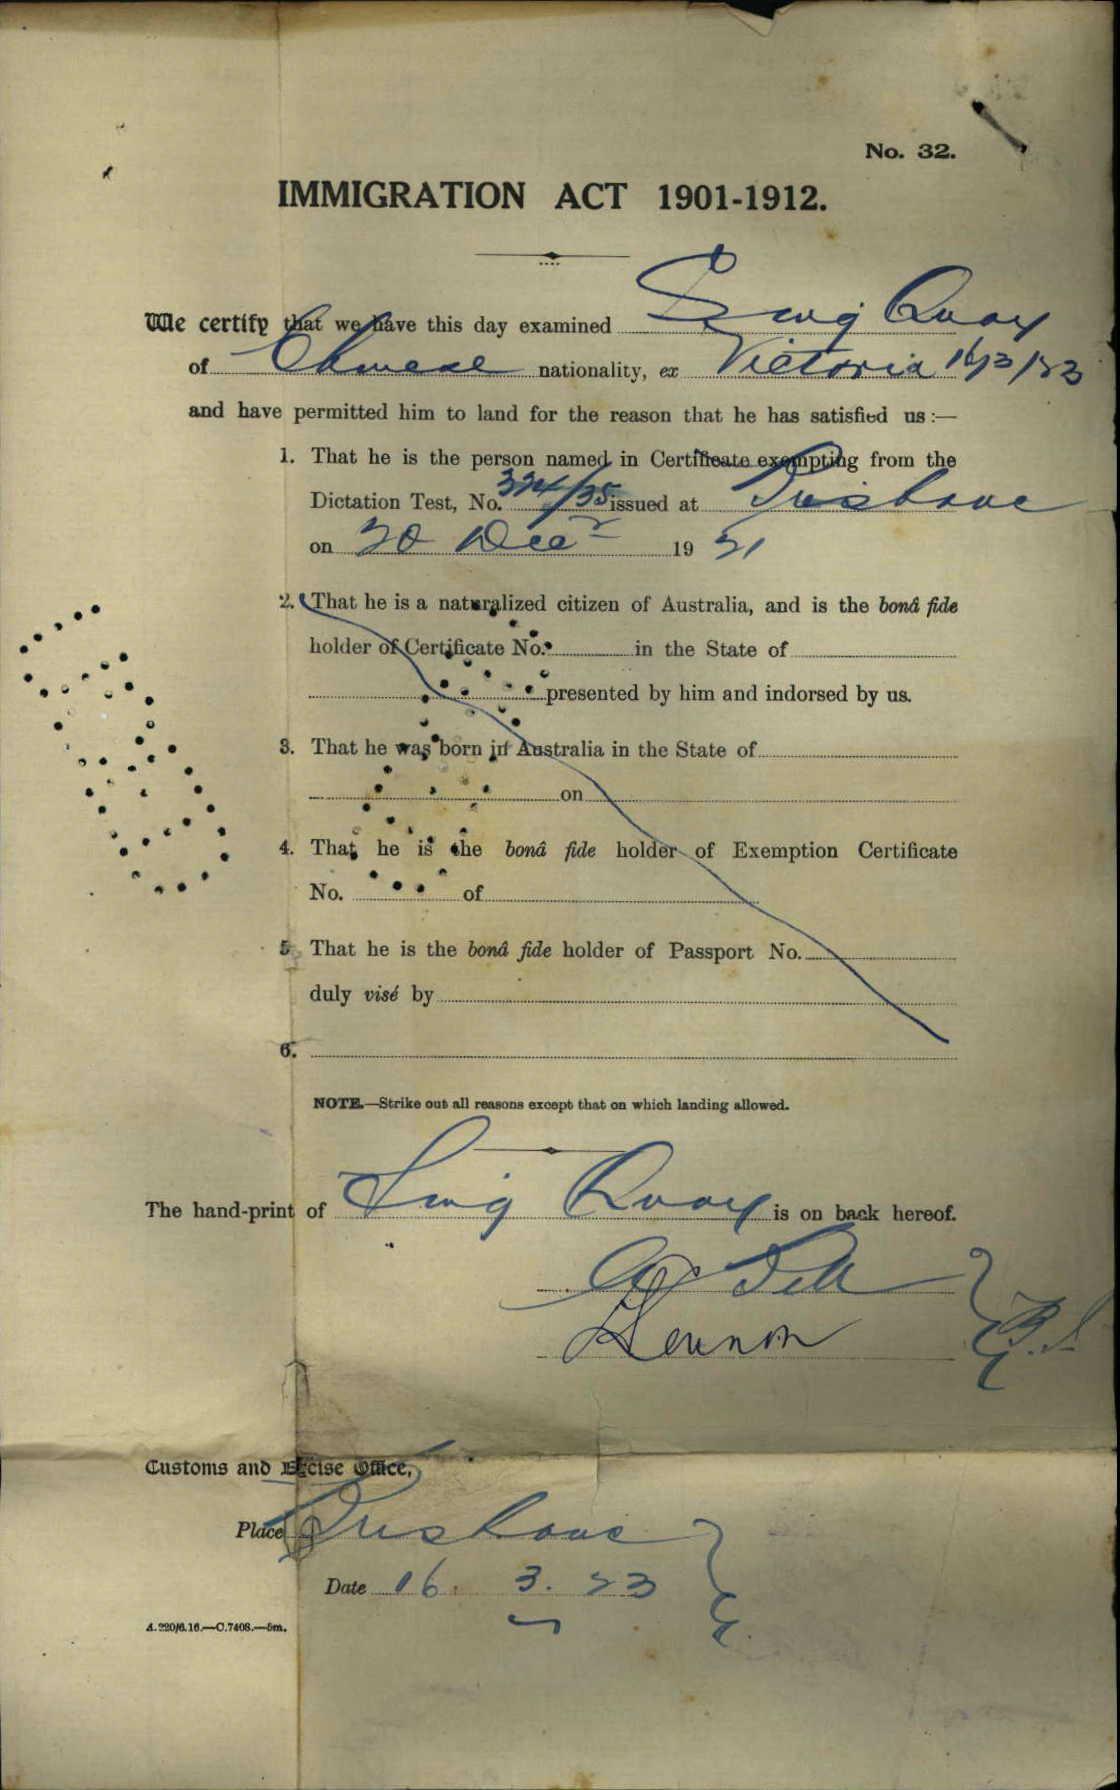 No. 32.
IMMIGRATION ACT 1901-1912.
We certify that we have this day examined Sing Quay
of Chinese nationality, ex Victoria 16/3/23
and have permitted him to land for the reason that he has satisfied us :—
1. That he is the person named in Certificate exempting from the
Dictation Test, No. 324/35 issued at Brisbane
on 20 Decr 1921
2. That he is a naturalized citizen of Australia, and is the bonâ fide
holder of Certificate No. in the State of
presented by him and indorsed by us.
3. That he was born in Australia in the State of
on
4. That he is the bonâ fide holder of Exemption Certificate
No. of
5. That he is the bonâ fide holder of Passport No.
duly visé by
6.
NOTE.—Strike out all reasons except that on which landing allowed.
The hand-print of Sing Quay is on back hereof.
Lennon
Customs and Excise Office,
Place Brisbane
Date 16. 3. 23
A.220/6.16.—C.7408.—5m.